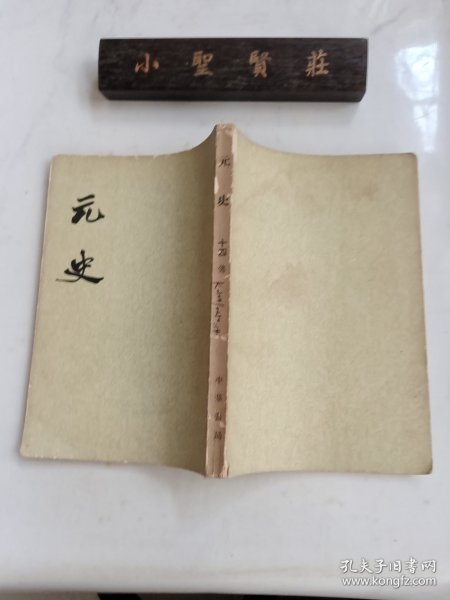 小聖賢莊
元史
元史
十四 傳
中華書局
孔夫子旧书网
www.kongfz.com